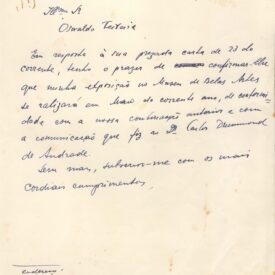 Ilmo Sr
Oswaldo Teixeira
Em resposta à sua prezada carta de 23 do
corrente, tenho o prazer de confirmar-lhe
que minha exposição no Museu de Belas Artes
se realizará em Maio do corrente ano, de conformi-
dade com a nossa combinação anterior e com
a comunicação que fiz ao Dr Carlos Drummond
de Andrade.
Sem mais, subscrevo-me com os mais
cordiais cumprimentos,
endereço: